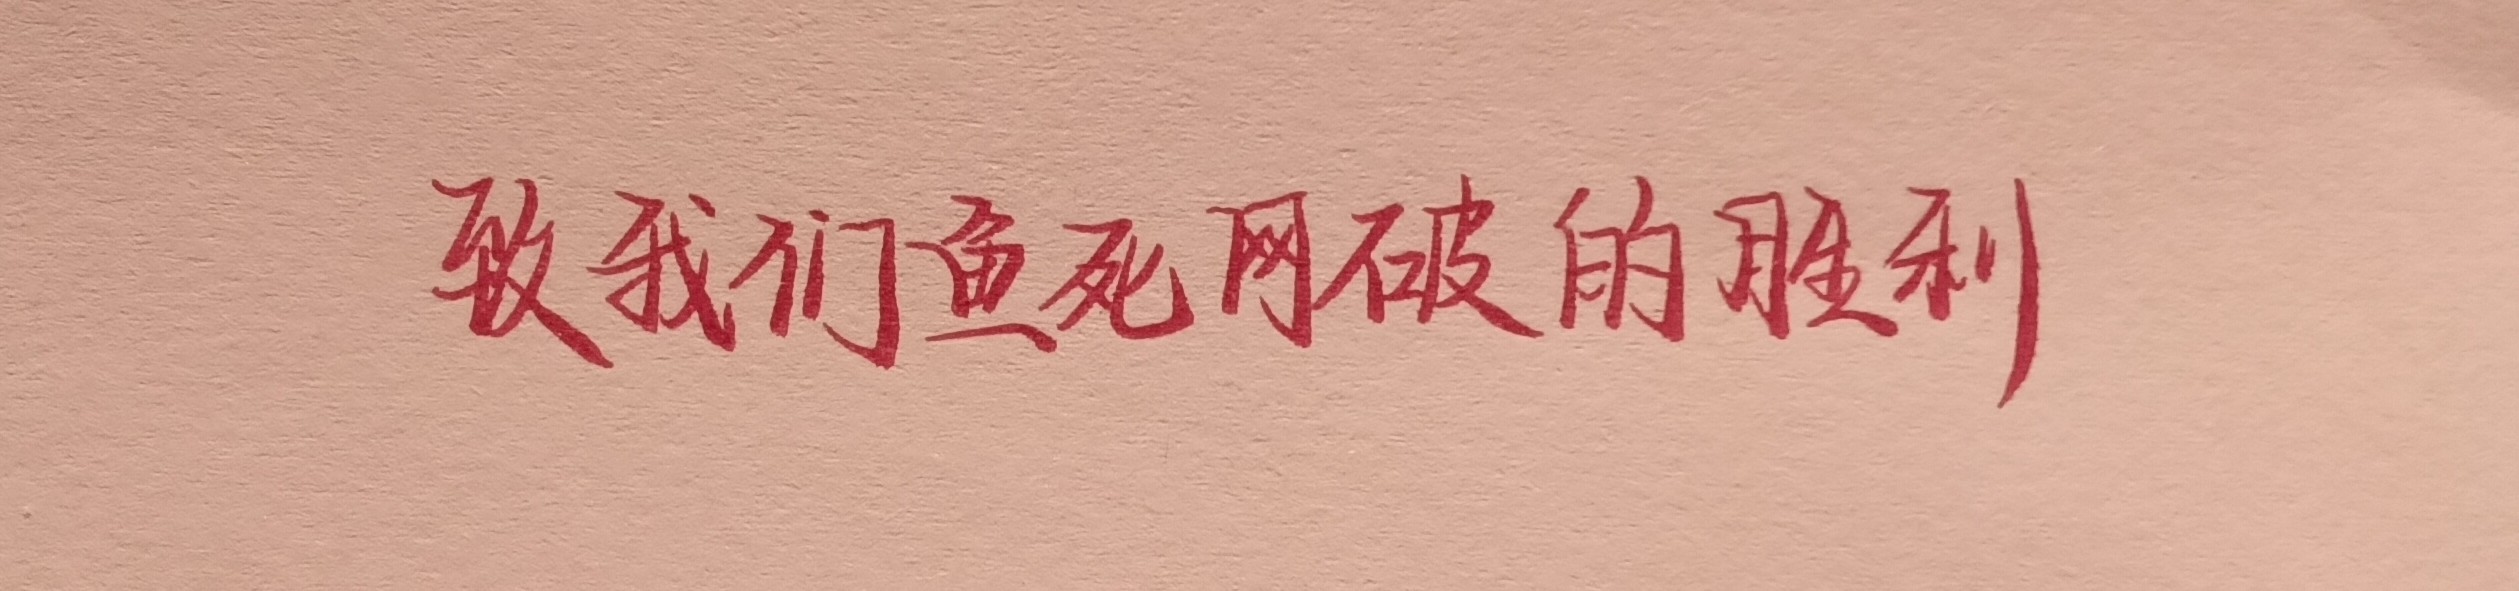 致我们鱼死网破的胜利